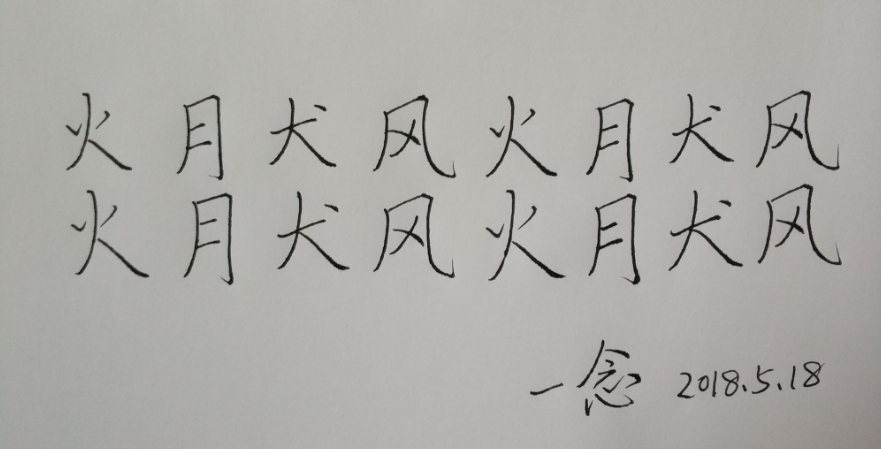 火月犬风火月犬风
火月犬风火月犬风
一念 2018.5.18